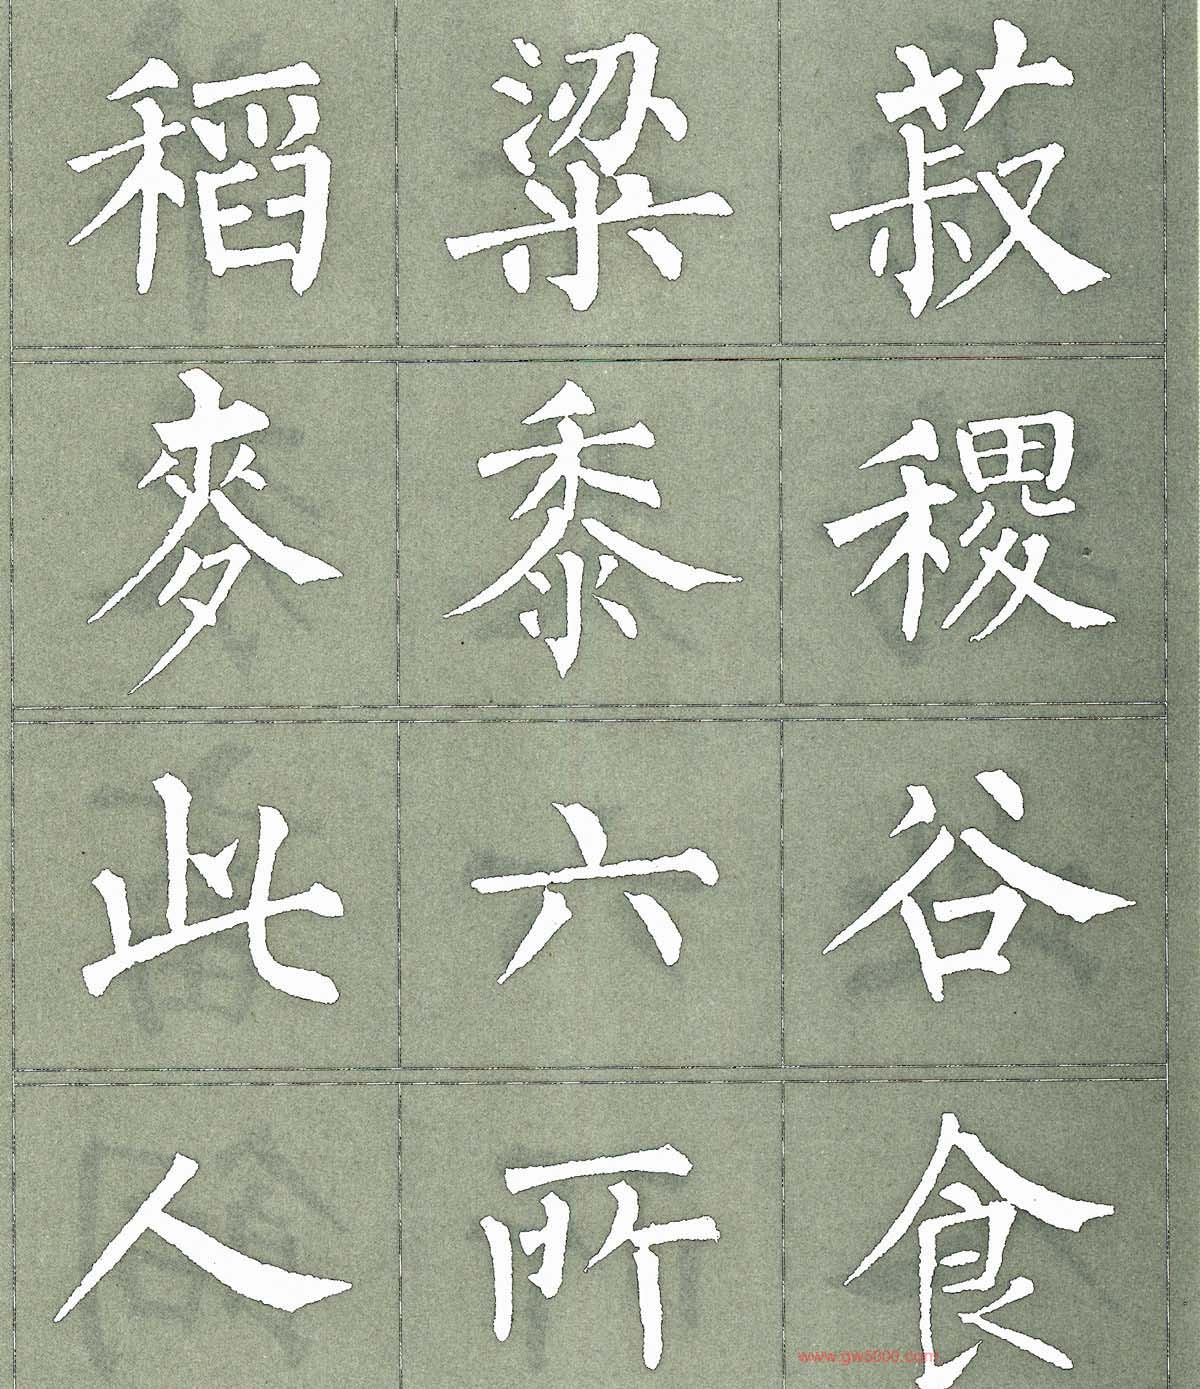 稻粱菽
麥黍稷
此六谷
人所食
www.gw5000.com